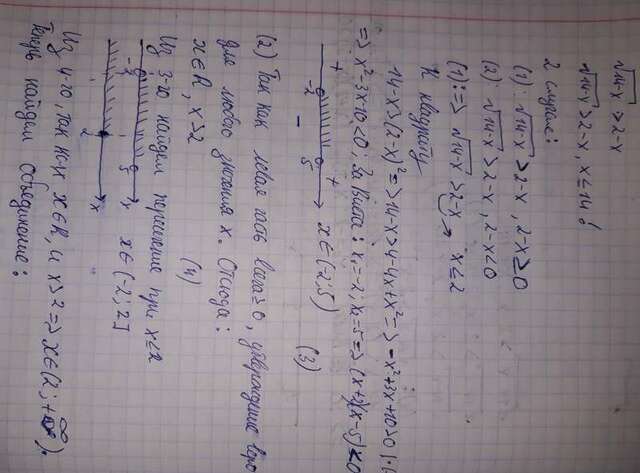 √14-x > 2-x
√14-x > 2-x, x ≤ 14!
2 случая:
(1): √14-x > 2-x, 2-x ≥ 0
(2): √14-x > 2-x, 2-x < 0
(1): => √14-x > 2-x x ≤ 2
К квадрату
14-x > (2-x)² => 14-x > 4-4x+x² => -x²+3x+10>0 |·(-
=> x²-3x-10<0; За Виета: x₁=-2; x₂=5 => (x+2)(x-5)<0
+ -2 - 5 + x∈(-2;5) (3)
(2) Так как левая часть всегда ≥ 0, утверждение верно
для любого значения x. Отсюда:
x∈R, x>2 (4)
Из 3-го найдем пересечение при x≤2
-2 5 x x∈(-2;2]
2 x
Из 4-го, так как x∈R, и x>2 => x∈(2;+∞).
Теперь найдем объединение: